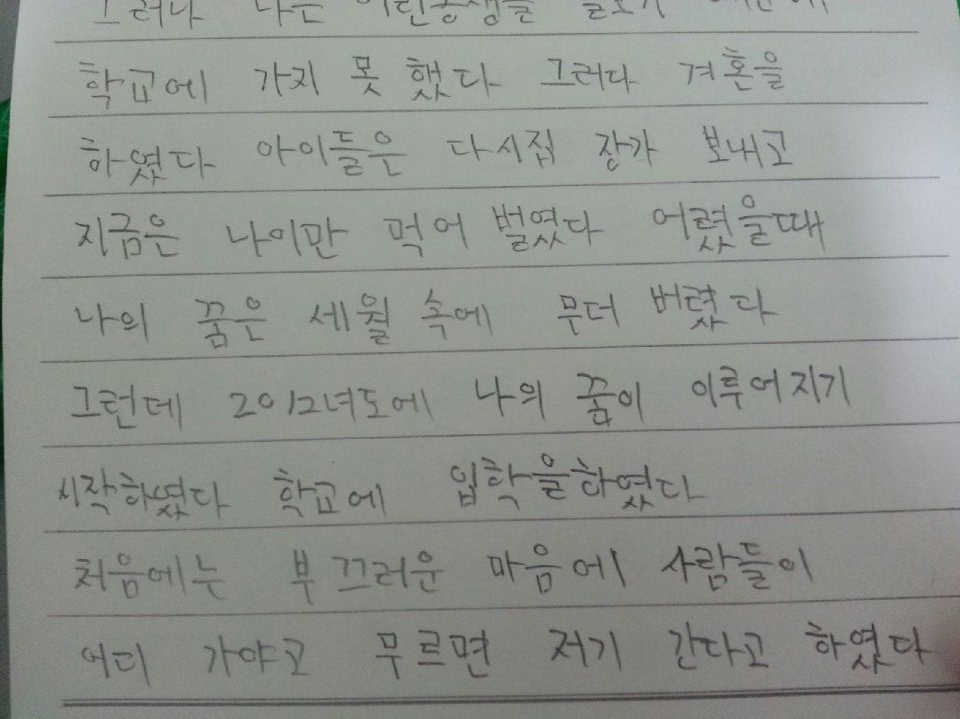 그러나 나는 어린동생을 돌보기 때문에
학교에 가지 못 했다 그러다 겨혼을
하였다 아이들은 다 시집 장가 보내고
지금은 나이만 먹어 벌였다 어렸을때
나의 꿈은 세월 속에 무더 버렸다
그런데 2012녀도에 나의 꿈이 이루어지기
시작하였다 학교에 입학을하였다
처음에는 부끄러운 마음에 사람들이
어디 가야고 무르면 저기 간다고 하였다